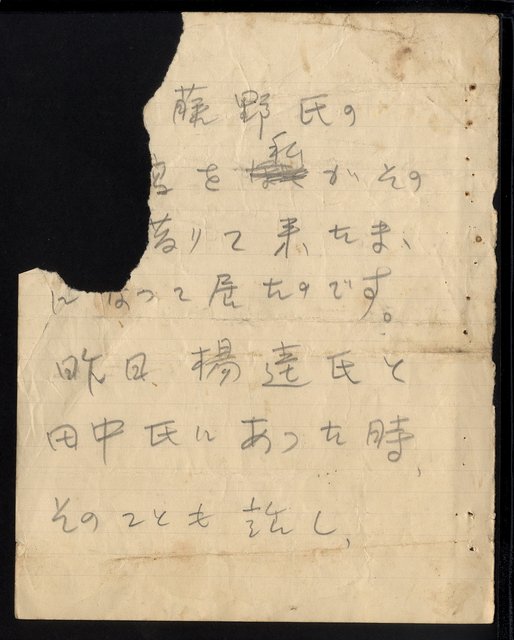 藤野氏の
を私がその
借りて来たまゝ
になって居たのです。
昨日楊逵氏と
田中氏にあった時、
そのことも話し、